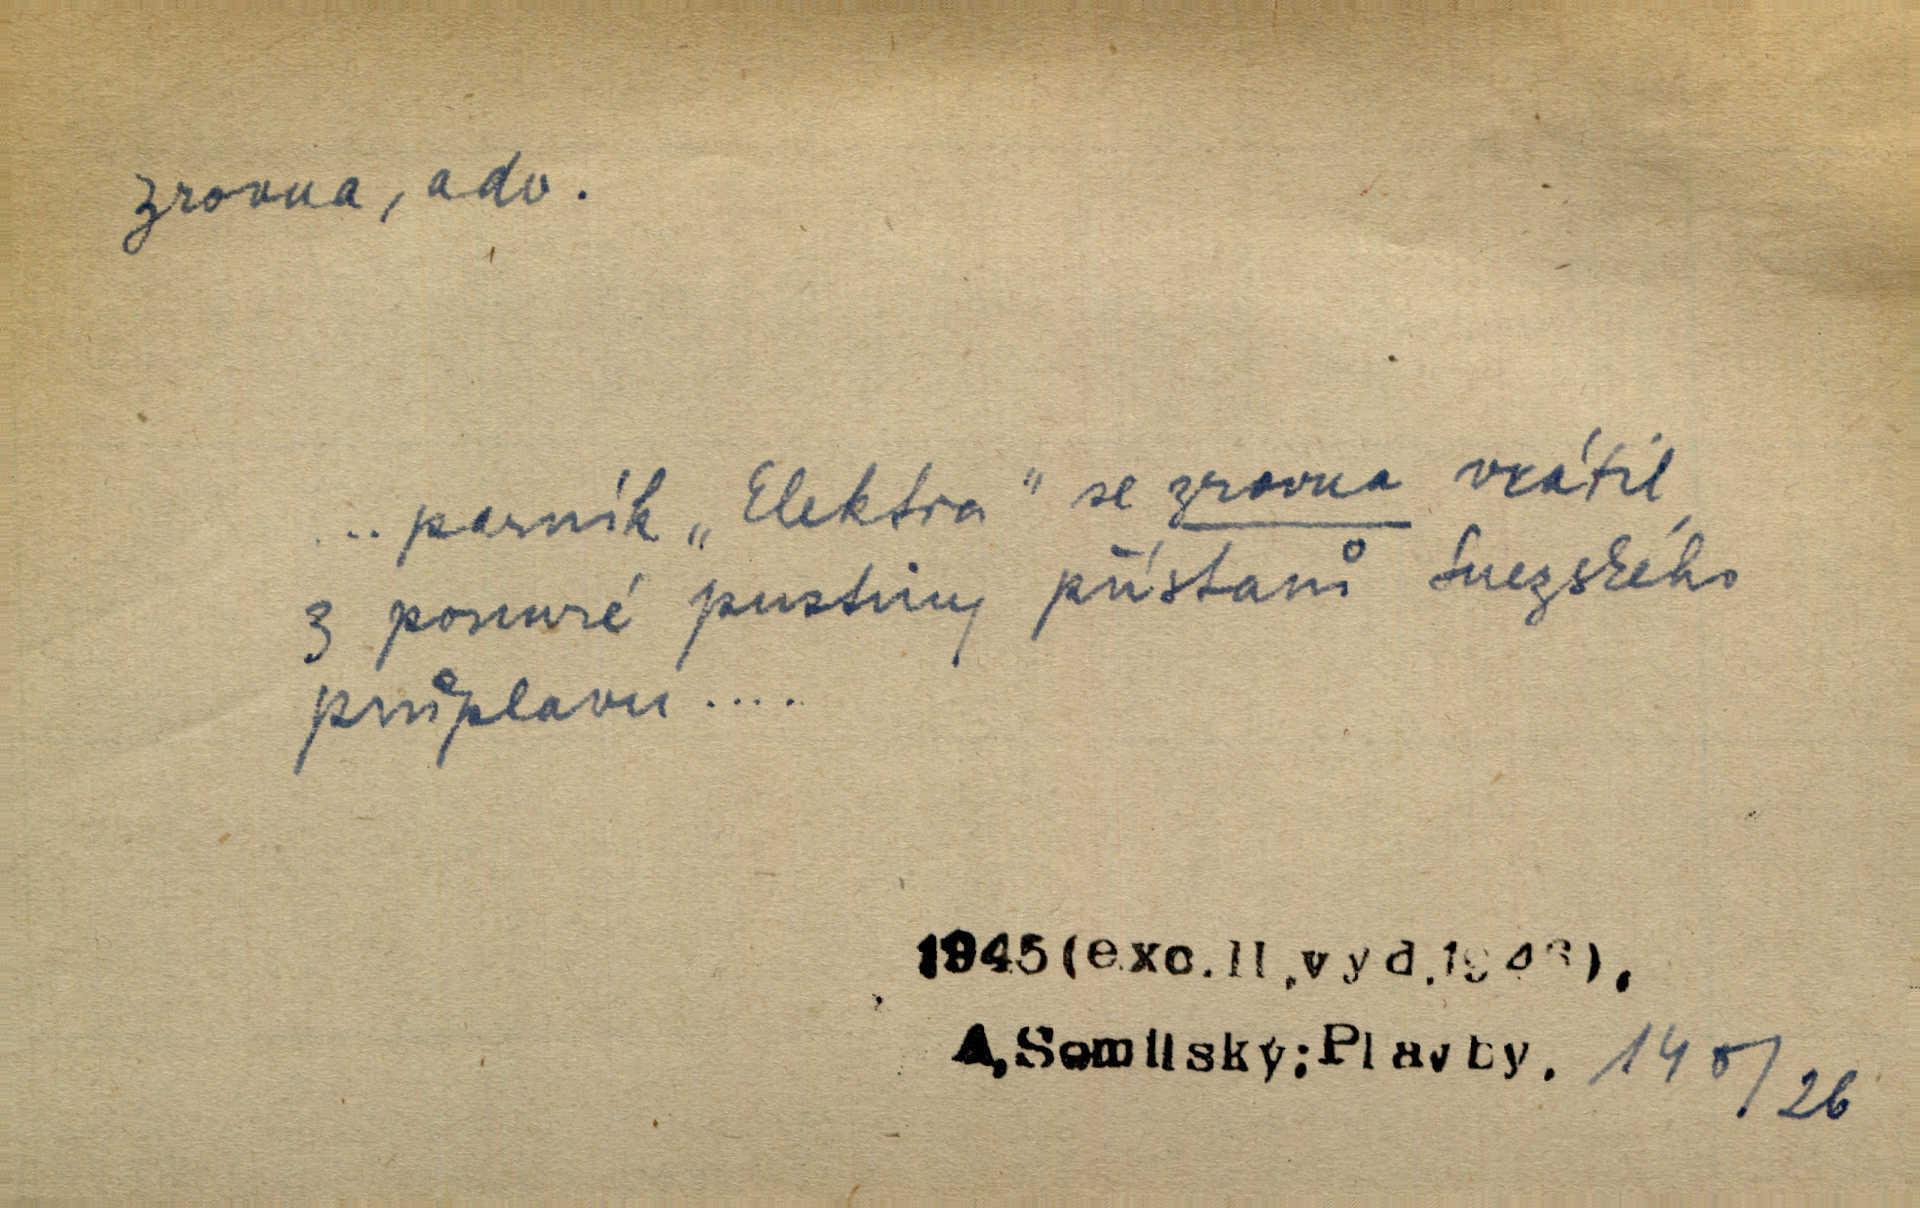 zrovna, adv.
... parník „Elektra" se zrovna vrátil
z ponuré pustiny přístavů Suezského
průplavu ....
1945(exc.II.vyd.1946).
A.Semilský:Plavby.
26